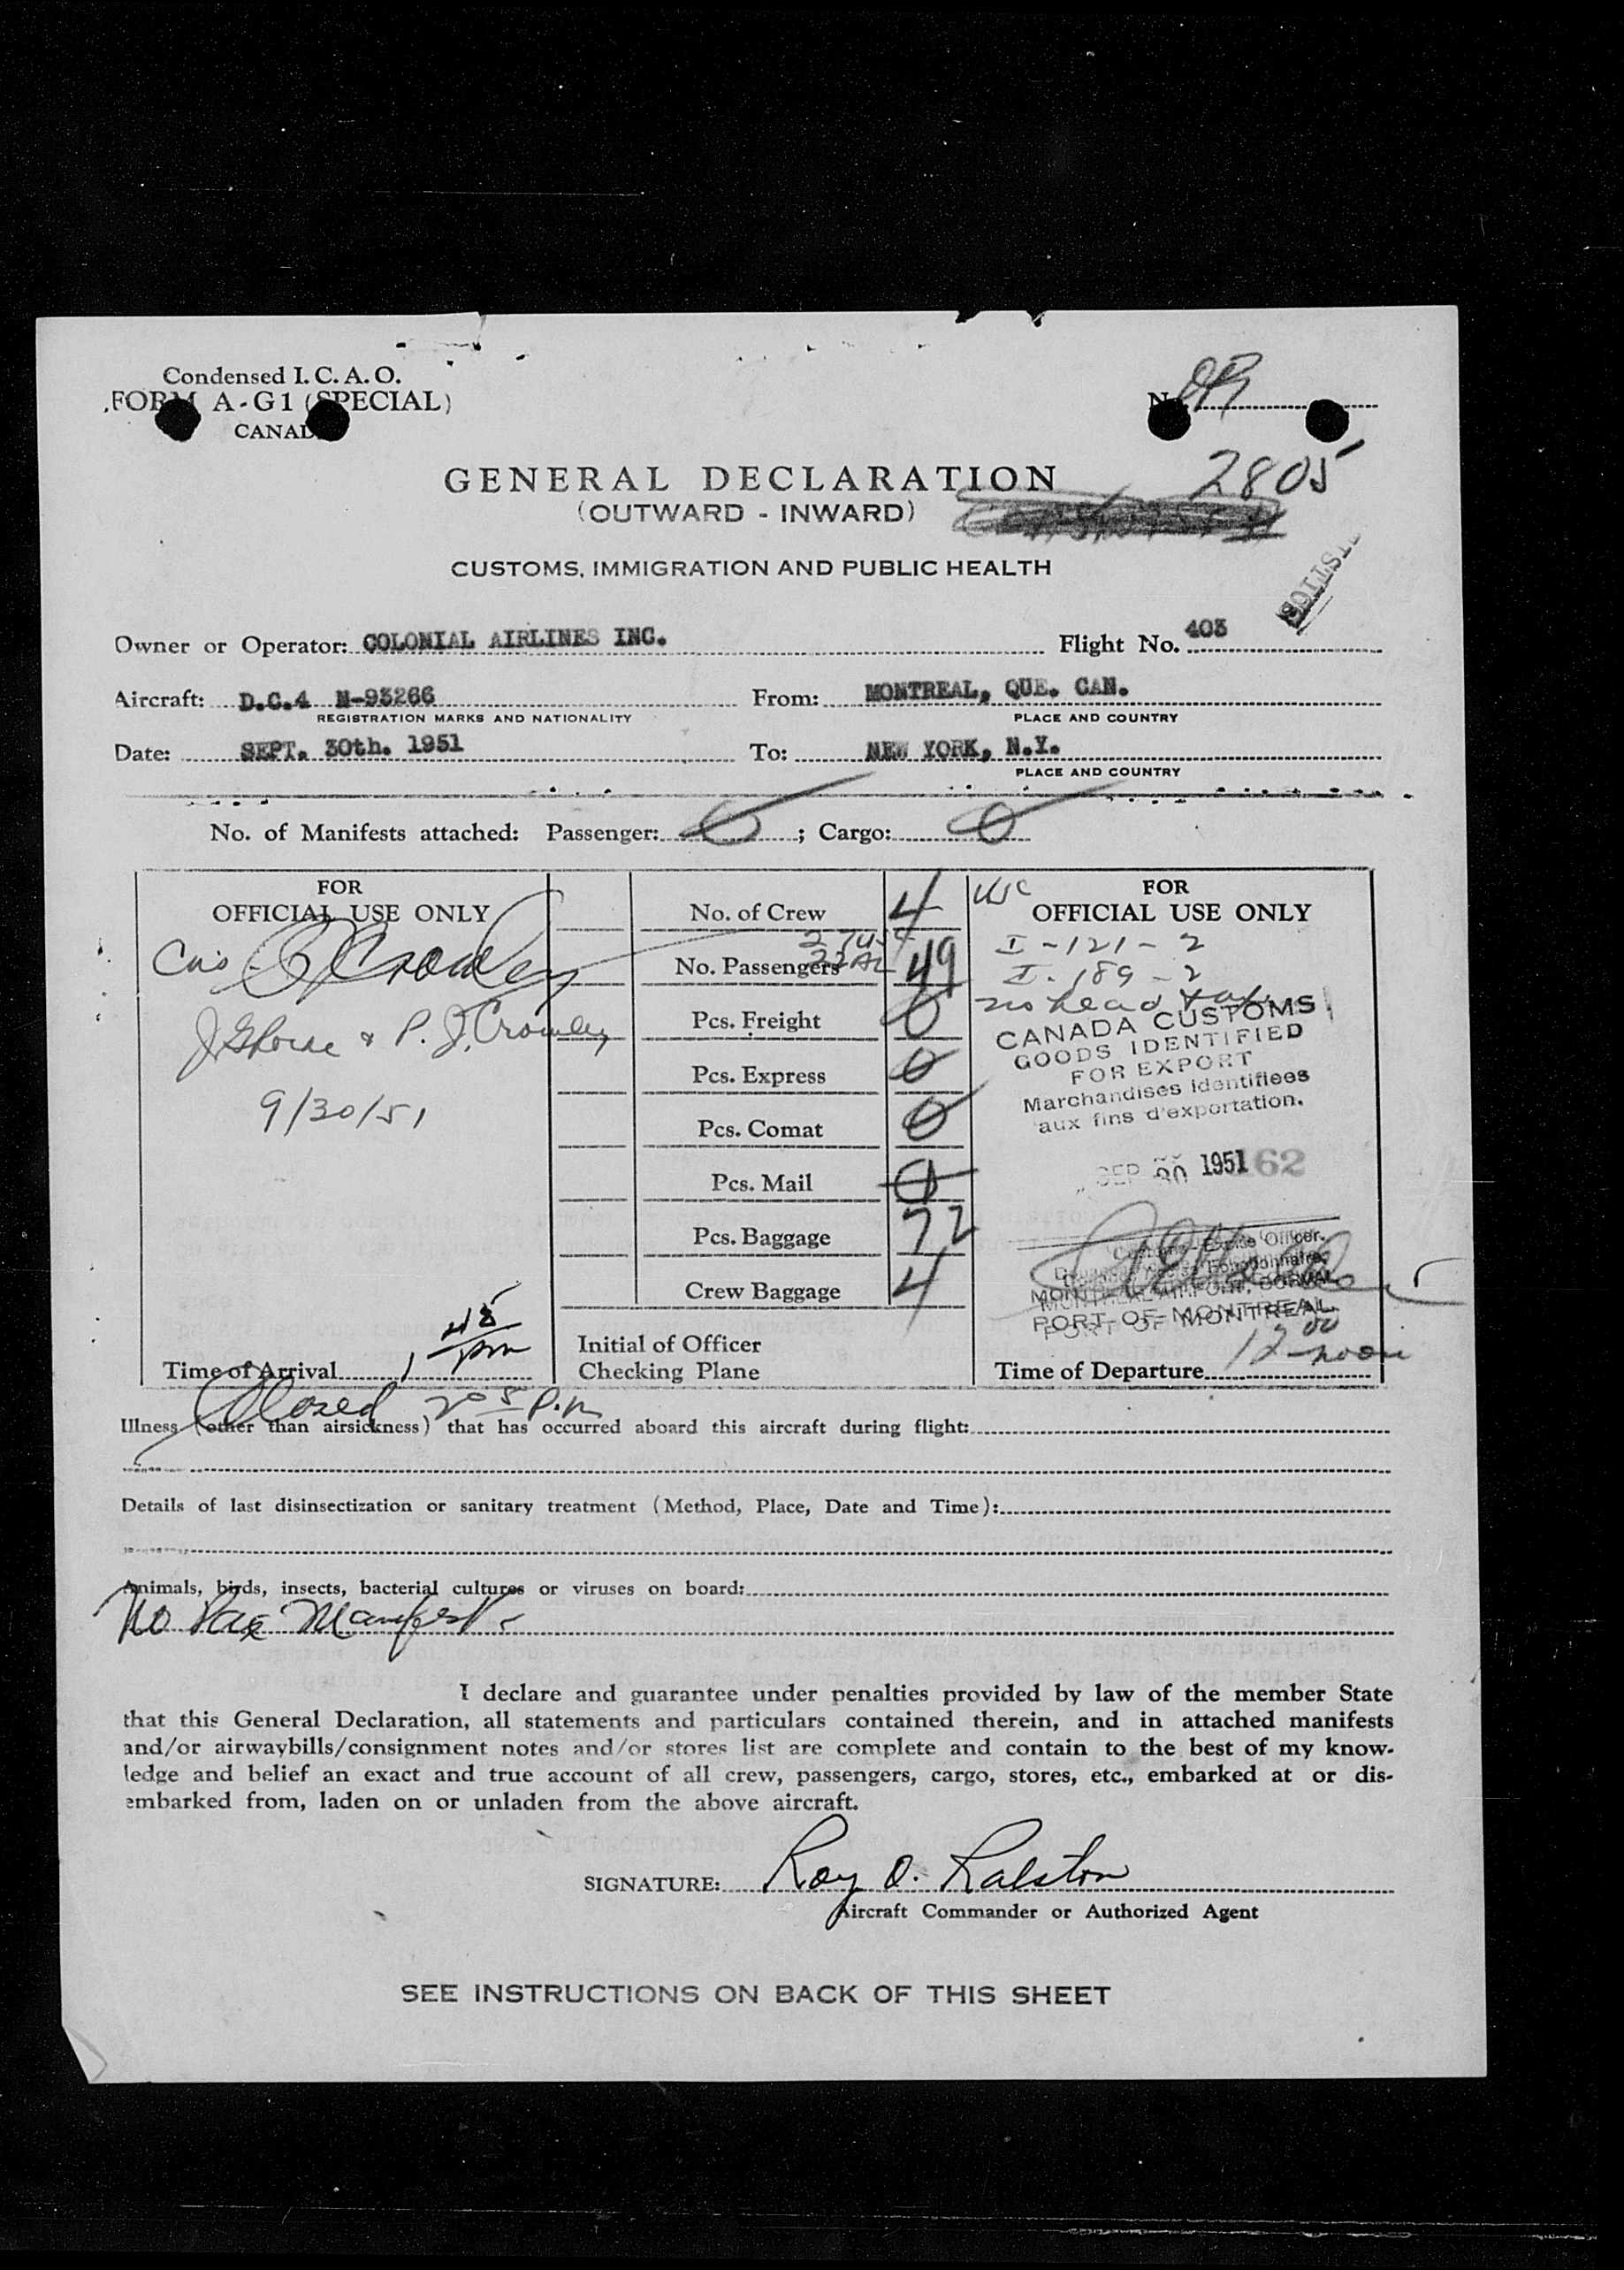 Condensed I. C. A. O.
FORM A-G1 (SPECIAL)
CANAD
No.
2805
GENERAL DECLARATION
(OUTWARD - INWARD)
CUSTOMS, IMMIGRATION AND PUBLIC HEALTH
Owner or Operator: COLONIAL AIRLINES INC. Flight No. 403
Aircraft: D.C.4 N-93266 From: MONTREAL, QUE. CAN.
REGISTRATION MARKS AND NATIONALITY PLACE AND COUNTRY
Date: SEPT. 30th. 1951 To: NEW YORK, N.Y.
PLACE AND COUNTRY
No. of Manifests attached: Passenger: 0 ; Cargo: 0
FOR OFFICIAL USE ONLY
Crowley
J. & P. J. Crowley
9/30/51
Time of Arrival 1 45 pm
No. of Crew 4
No. Passengers 49
Pcs. Freight 0
Pcs. Express 0
Pcs. Comat 0
Pcs. Mail 0
Pcs. Baggage 72
Crew Baggage 4
Initial of Officer
Checking Plane
FOR
OFFICIAL USE ONLY
I-121-2
I-189-2
no head tax
CANADA CUSTOMS
GOODS IDENTIFIED
FOR EXPORT
Marchandises identifiees
aux fins d'exportation.
SEP 30 1951 62
Customs Excise Officer.
MONTREAL AIRPORT, DORVAL
PORT OF MONTREAL
Time of Departure 12 00 noon
Closed 2 05 P.m
Illness (other than airsickness) that has occurred aboard this aircraft during flight:
Details of last disinsectization or sanitary treatment (Method, Place, Date and Time):
Animals, birds, insects, bacterial cultures or viruses on board:
No Pax Manifest
I declare and guarantee under penalties provided by law of the member State
that this General Declaration, all statements and particulars contained therein, and in attached manifests
and/or airwaybills/consignment notes and/or stores list are complete and contain to the best of my know-
ledge and belief an exact and true account of all crew, passengers, cargo, stores, etc., embarked at or dis-
embarked from, laden on or unladen from the above aircraft.
SIGNATURE: Roy O. Ralston
Aircraft Commander or Authorized Agent
SEE INSTRUCTIONS ON BACK OF THIS SHEET